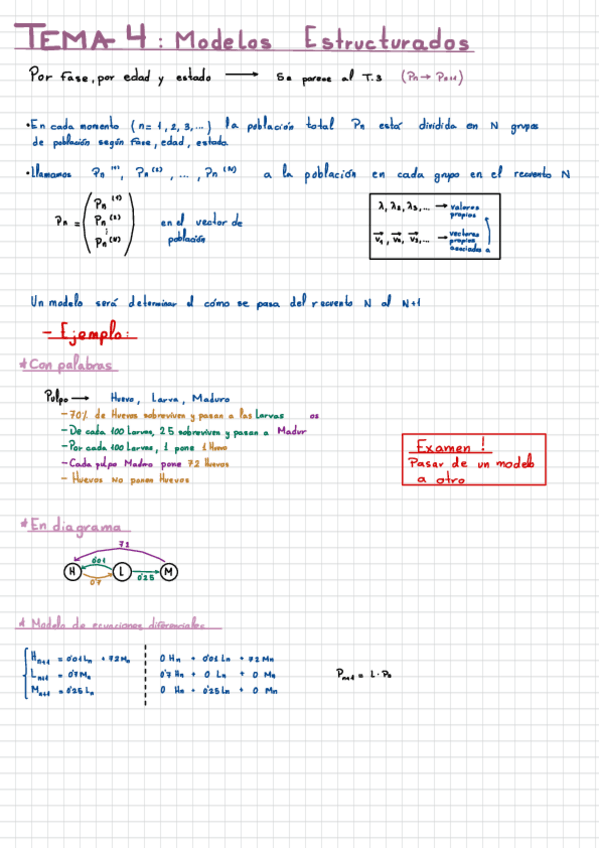 TEMA 4: Modelos Estructurados
Por fase, por edad y estado ⟶ Se parece al T.3 (Pn → Pn+1)
•En cada momento (n= 1, 2, 3,...) la población total Pn está dividida en N grupos
de población según fase, edad, estado.
•Llamamos Pn⁽¹⁾, Pn⁽²⁾, ..., Pn⁽ᴺ⁾ a la población en cada grupo en el recuento N
Pn = ( Pn⁽¹⁾ Pn⁽²⁾ ⋮ Pn⁽ᴺ⁾ ) en el vector de
población
λ, λ₂, λ₃,... → valores
propios
v₁, v₂, v₃,... → vectores
propios
asociados a
Un modelo será determinar el cómo se pasa del recuento N al N+1
- Ejemplo:
*Con palabras
Pulpo ⟶ Huevo, Larva, Maduro
-70% de Huevos sobreviven y pasan a las Larvas os
-De cada 100 Larvas, 25 sobreviven y pasan a Madur
-Por cada 100 Larvas, 1 pone 1 Huevo
-Cada pulpo Maduro pone 72 Huevos
- Huevos No ponen Huevos
Examen!
Pasar de un modelo
a otro
*En diagrama
72
0'01
H L M
0'7 0'25
* Modelo de ecuaciones diferenciales
Hn+1 = 0'01Ln + 72Mn 0 Hn + 0'01 Ln + 72 Mn
Ln+1 = 0'7Hn 0'7 Hn + 0 Ln + 0 Mn
Mn+1 = 0'25Ln 0 Hn + 0'25Ln + 0 Mn
Pn+1 = L · Pn